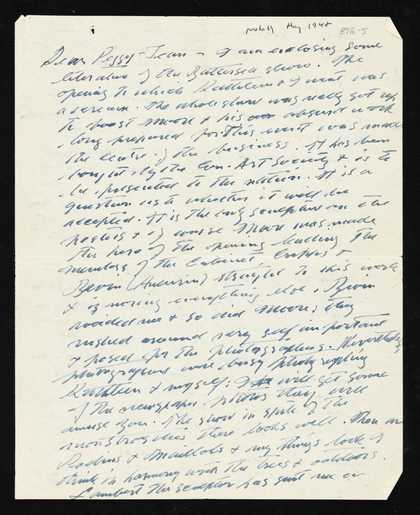 probably May 1948
Dear Peggy-Jean - I am enclosing some
literature of the Battersea show. The
opening to which Kathleen & I went was
a scream. The whole show was really got up
to boost Moore & his own absurd work
long prepared for this event was made
the centre of the business. It has been
bought by the Con. Art Society & is to
be presented to the nation. It is a
question as to whether it will be
accepted. It is the only sculpture on the
posters & of course Moore was made
the hero of the opening leading the
members of the Cabinet Cripps &
Bevan (Aneurin) straight to this work
& ignoring everything else. Bevan
avoided me & so did Moore; they
rushed around very self important
& posed for the photographers. Nevertheless
photographers were busy photographing
Kathleen & myself; I will get some
of the newspaper photos they will
amuse you. The show in spite of the
monstrosities there looks well. The
Rodins & Maillols & my things look I
think in harmony with the trees & outdoors.
Lambert the sculptor has sent me a